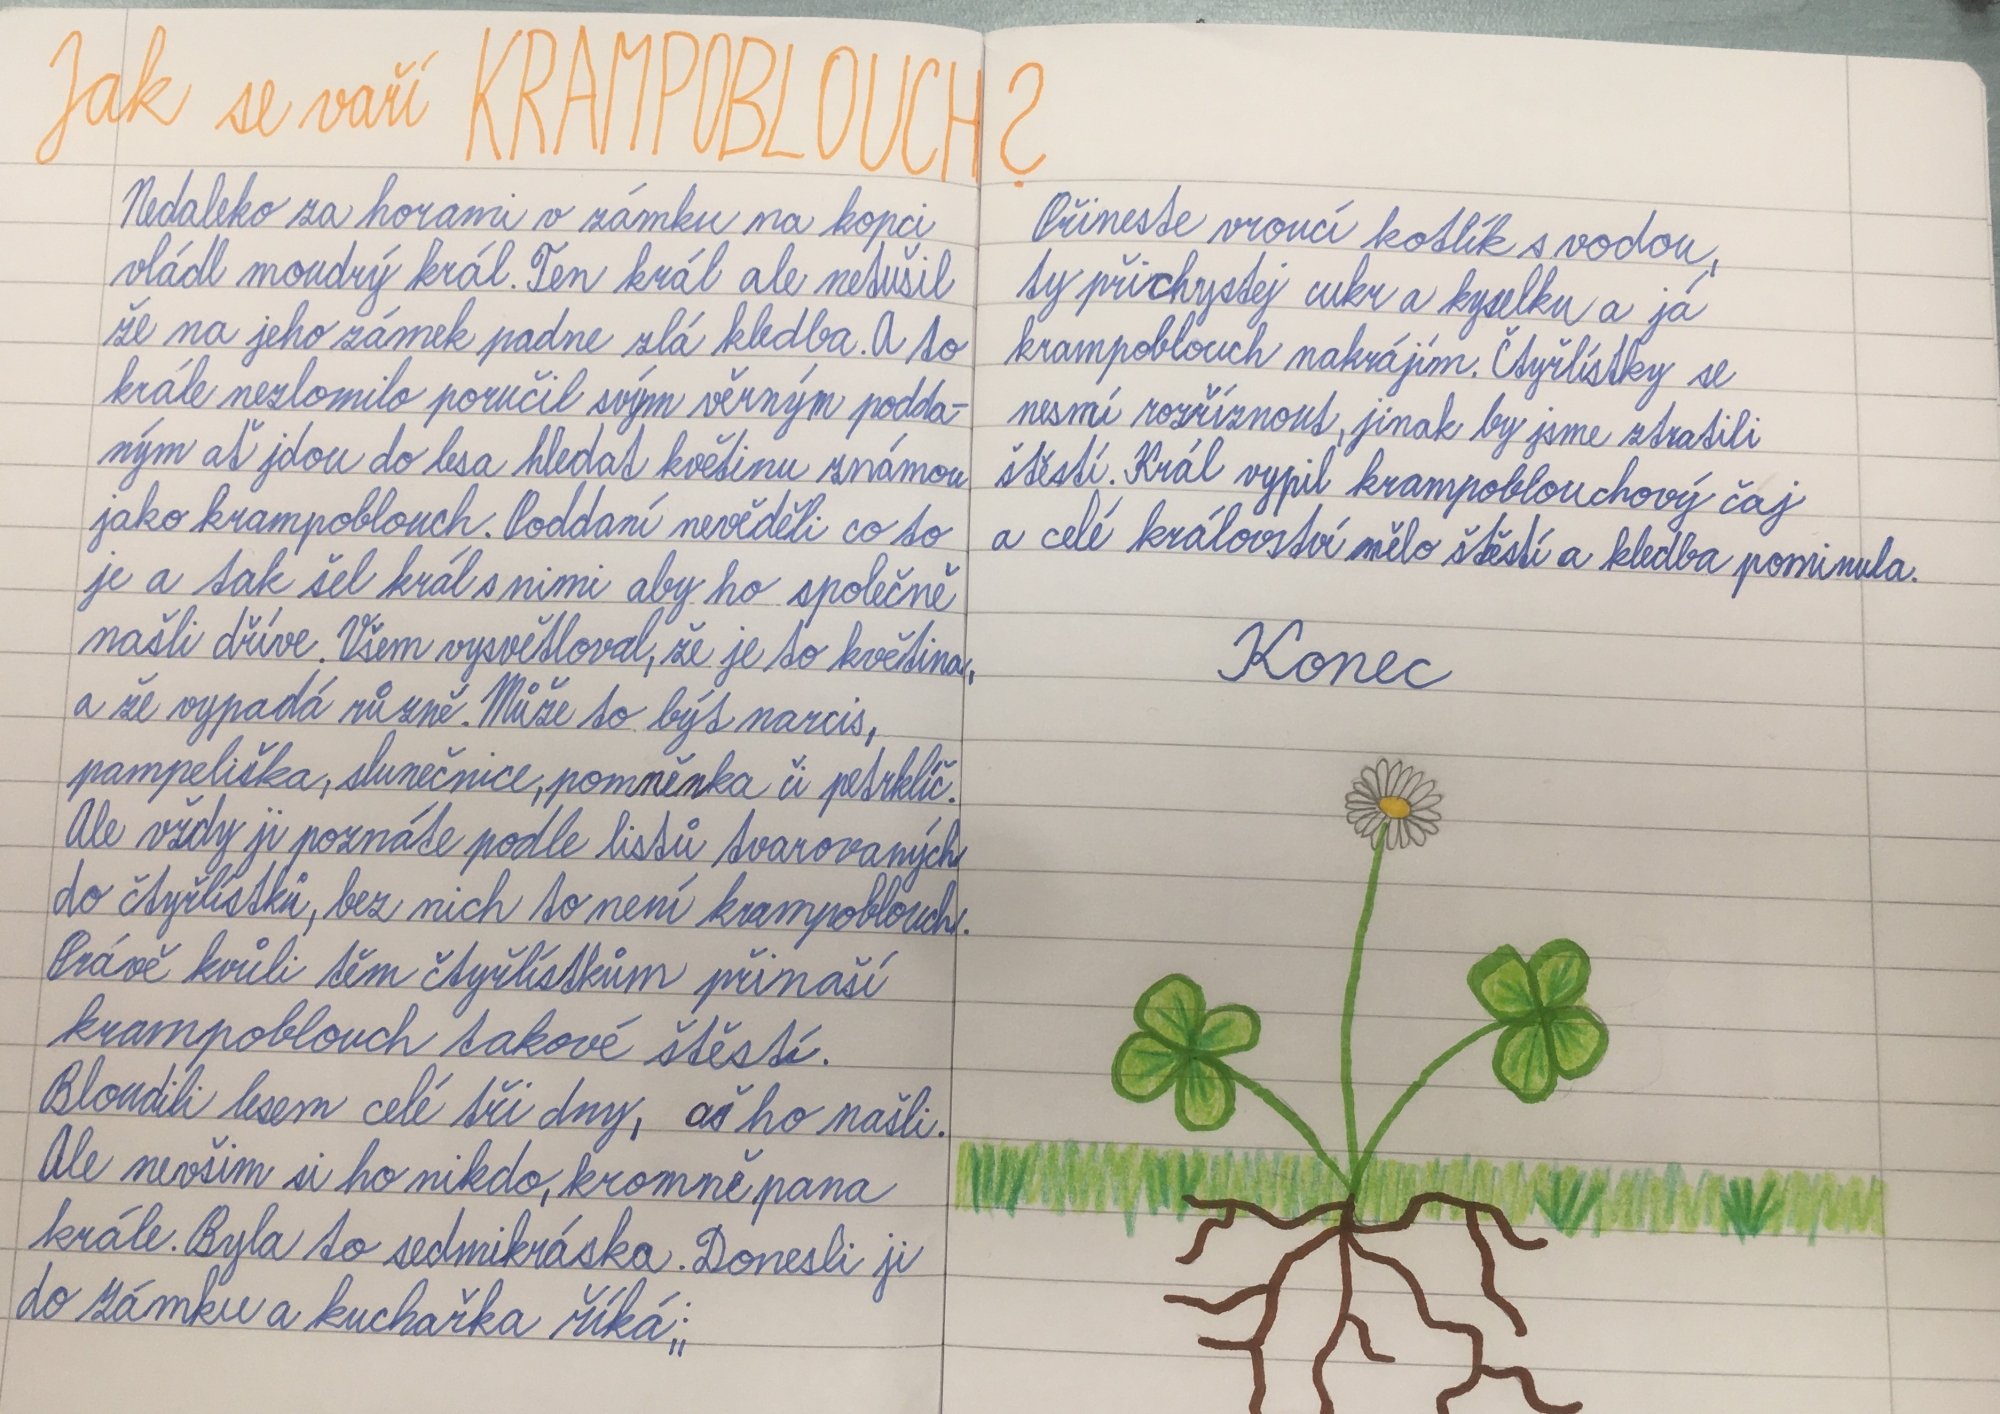 Jak se vaří KRAMPOBLOUCH?
Nedaleko za horami v zámku na kopci
vládl moudrý král. Ten král ale netušil
že na jeho zámek padne zlá kledba. A to
krále nezlomilo poručil svým věrným podda-
ným ať jdou do lesa hledat květinu známou
jako krampoblouch. Poddaní nevěděli co to
je a tak šel král s nimi aby ho společně
našli dříve. Všem vysvětloval, že je to květina,
a že vypadá různě. Může to být narcis,
pampeliška, slunečnice, pomněnka či petrklíč.
Ale vždy ji poznáte podle listů tvarovaných
do čtyřlístků, bez nich to není krampoblouch.
Právě kvůli těm čtyřlístkům přinaší
krampoblouch takové štěstí.
Bloudili lesem celé tři dny, až ho našli.
Ale nevšim si ho nikdo, kromně pana
krále. Byla to sedmikráska. Donesli ji
do zámku a kuchařka říká:„
Přineste vroucí kotlík s vodou,
ty přichystej cukr a kyselku a já
krampoblouch nakrájím. Čtyřlístky se
nesmí rozříznout, jinak by jsme ztratili
štěstí. Král vypil krampoblouchový čaj
a celé království mělo štěstí a kledba pominula.
Konec